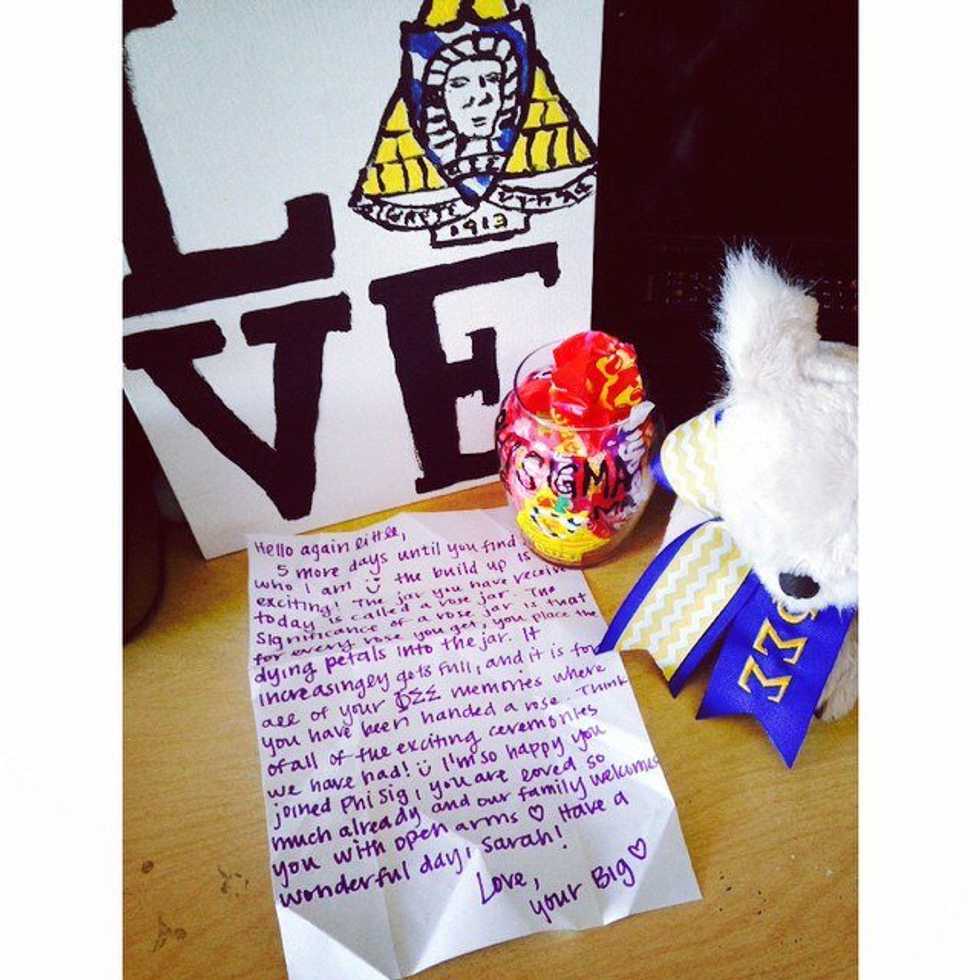 L
1913
VE
SIGMA
ΦΣΣ
Hello again little,
5 more days until you find
who I am the build up is
exciting! The jar you have receive
today is called a rose jar. The
significance of a rose jar is that
for every rose you get, you place the
dying petals into the jar. It
increasingly gets full, and it is for
all of your ΦΣΣ memories where
you have been handed a rose. Think
of all of the exciting ceremonies
we have had! I'm so happy you
joined Phi Sig, you are loved so
much already and our family welcomes
you with open arms ♡ Have a
wonderful day, Sarah!
Love,
your Big ♡